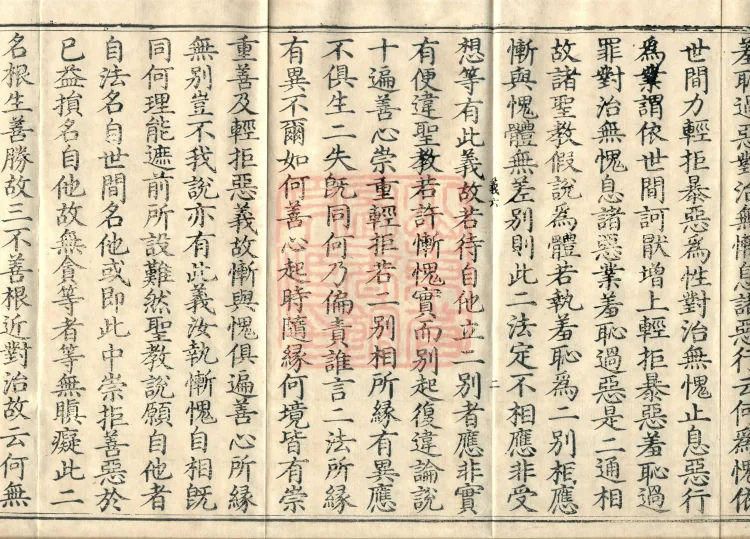 羞恥過惡對治無慚息諸惡行云何爲愧依
世間力輕拒暴惡爲性對治無愧止息惡行
爲業謂依世間訶猒增上輕拒暴惡羞恥過
罪對治無愧息諸惡業羞恥過惡是二通相
故諸聖教假說爲體若執羞恥爲二別相應
慚與愧體無差別則此二法定不相應非受
義六
二
想等有此義故若待自他立二別者應非實
有便違聖教若許慚愧實而別起復違論說
十遍善心崇重輕拒若二別相所緣有異應
不俱生二失旣同何乃偏責誰言二法所緣
有異不爾如何善心起時隨緣何境皆有崇
重善及輕拒惡義故慚與愧俱遍善心所緣
無別豈不我說亦有此義汝執慚愧自相旣
同何理能遮前所設難然聖教說顧自他者
自法名自世間名他或即此中崇拒善惡於
已益損名自他故無貪等者等無瞋癡此二
名根生善勝故三不善根近對治故云何無